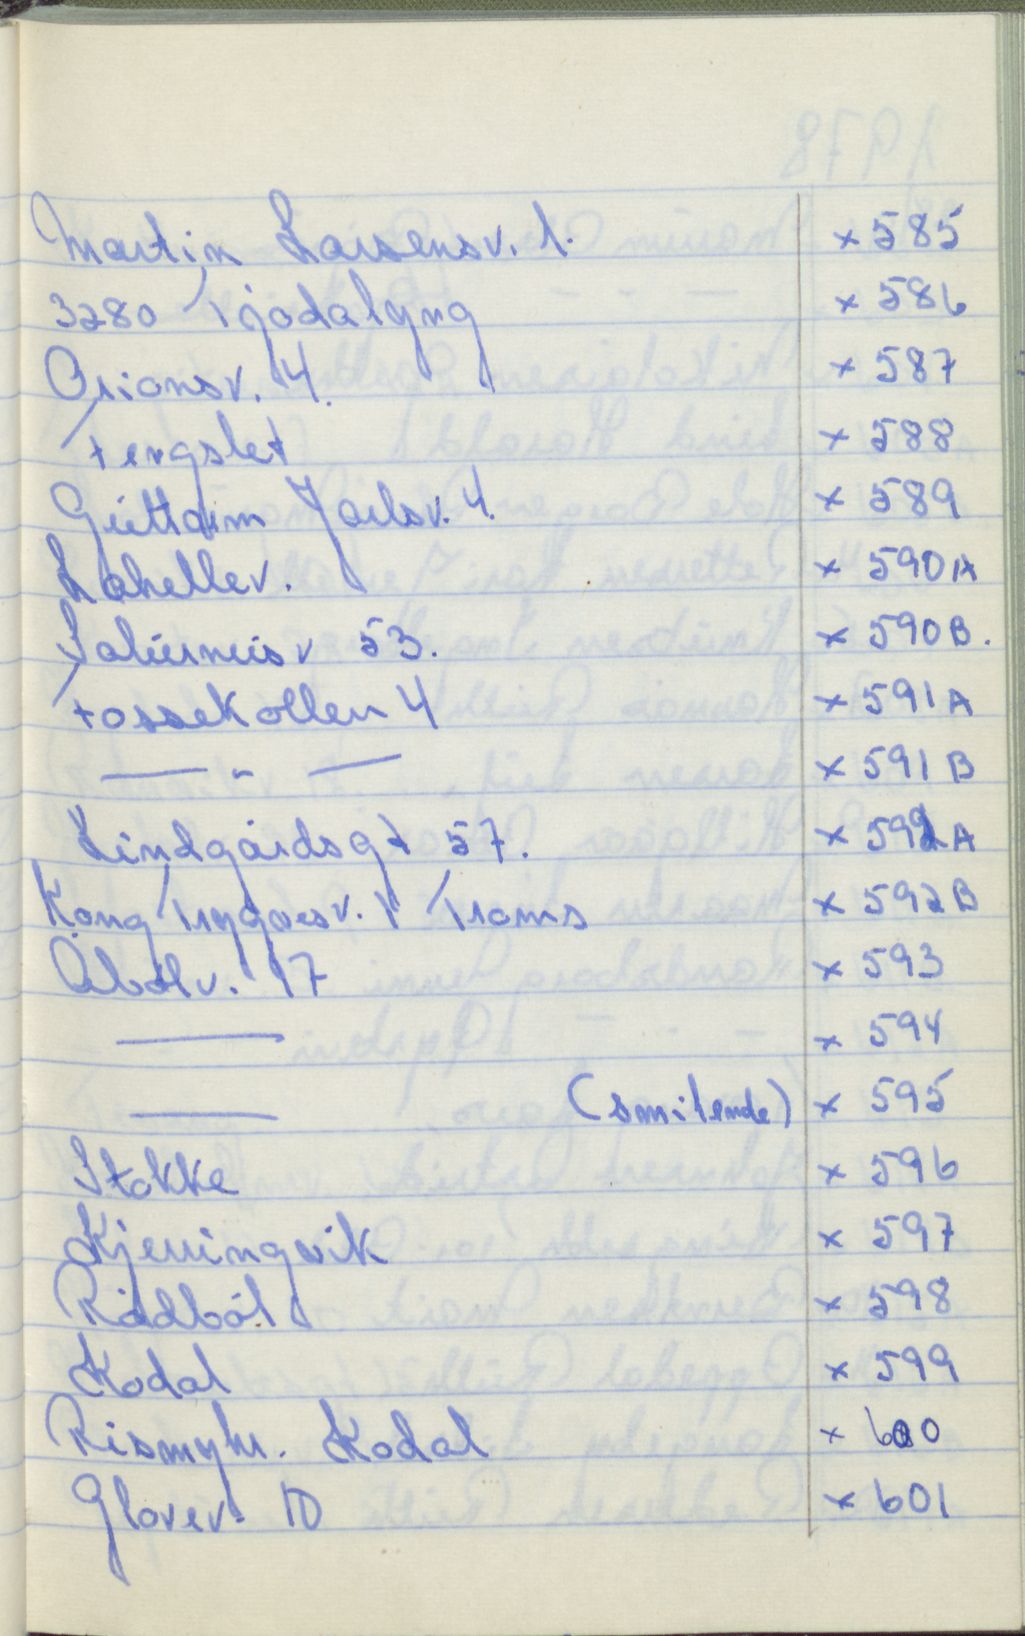 Martin Larsensv. 1. x 585
3280 Tjodalyng x 586
Orionsv. 4. x 587
Fergslet x 588
Guttorm Jarlsv. 4. x 589
Lahellev. x 590 A
Saturnusv 53. x 590 B.
Fossekollen 4 x 591 A
— " — x 591 B
Lindgårdsgt 57. x 592 A
Kong Trygvesv. 1 Troms x 592 B
Øbølv. 17 x 593
— x 594
— (smilende) x 595
Stokke x 596
Kjerringvik x 597
Rådbøl x 598
Kodal x 599
Rismyhr. Kodal x 600
Glover. 10 x 601